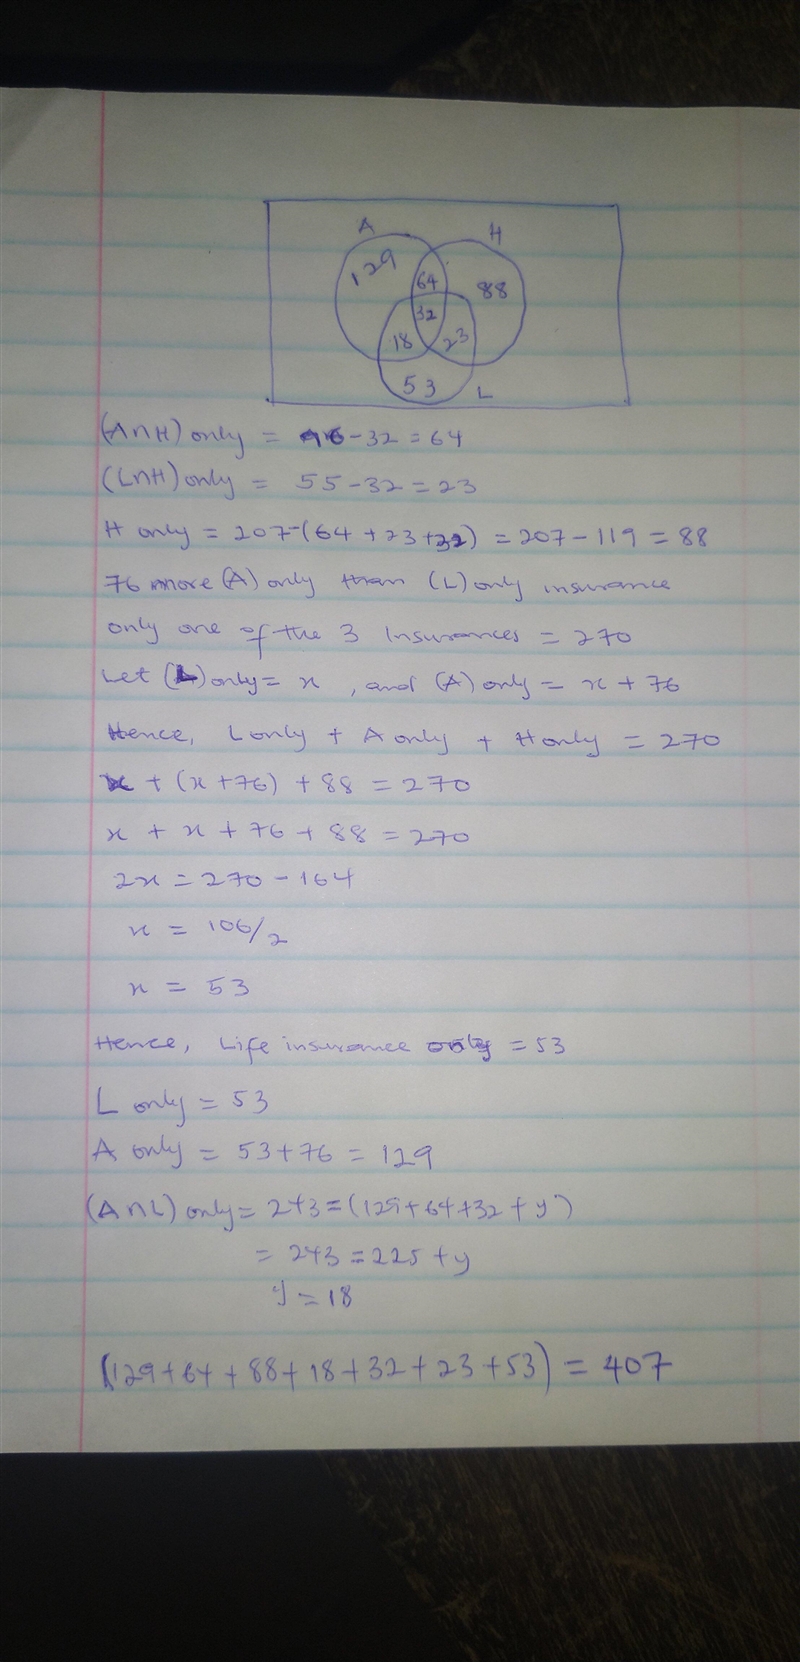 A
H
129
64
88
32
18
23
53
L
(A∩H) only = 96-32=64
(L∩H) only = 55-32=23
H only = 207-(64+23+32) = 207-119 = 88
76 more (A) only than (L) only insurance
only one of the 3 Insurances = 270
Let (L) only = x , and (A) only = x+76
Hence, L only + A only + H only = 270
x + (x+76) + 88 = 270
x + x + 76 + 88 = 270
2x = 270-164
x = 106/2
x = 53
Hence, Life insurance only = 53
L only = 53
A only = 53+76 = 129
(A∩L) only = 243=(129+64+32+y)
= 243=225+y
y=18
(129+64+88+18+32+23+53) = 407